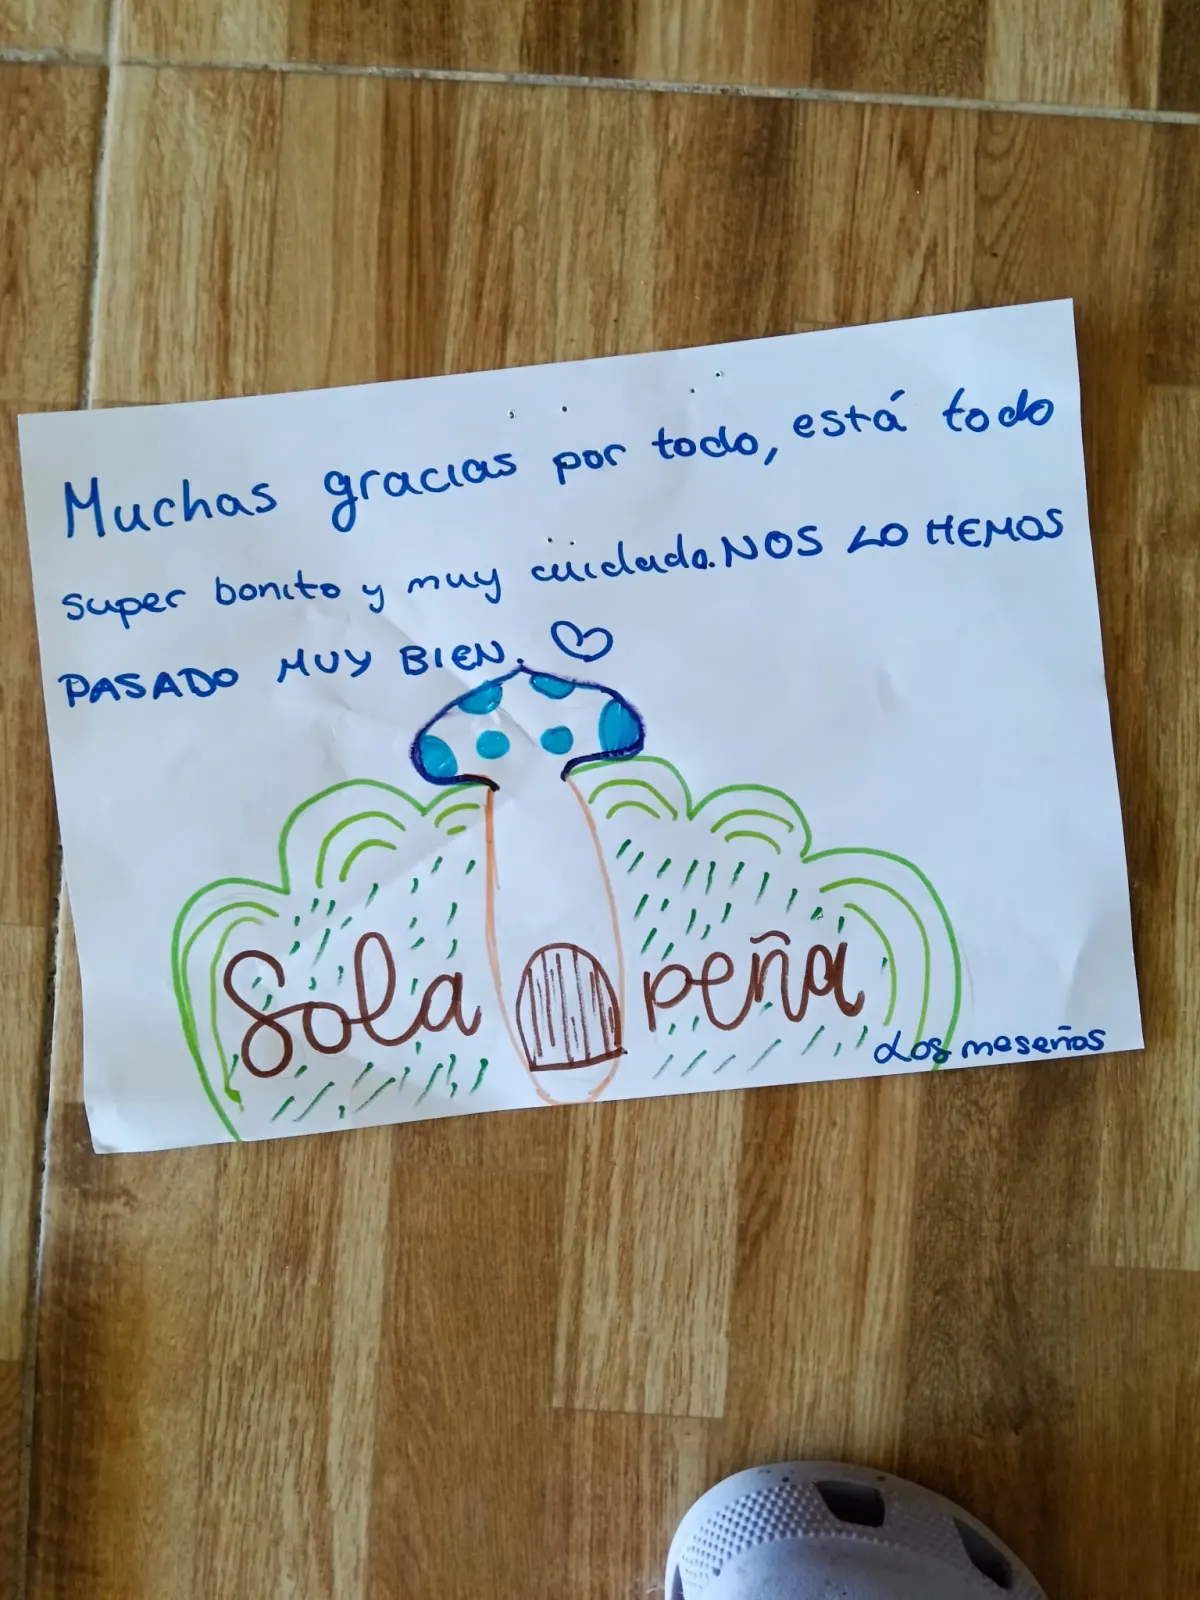 Muchas gracias por todo, está todo
super bonito y muy cuidado. NOS LO HEMOS
PASADO MUY BIEN. ♡
Sola peña
Los meseños